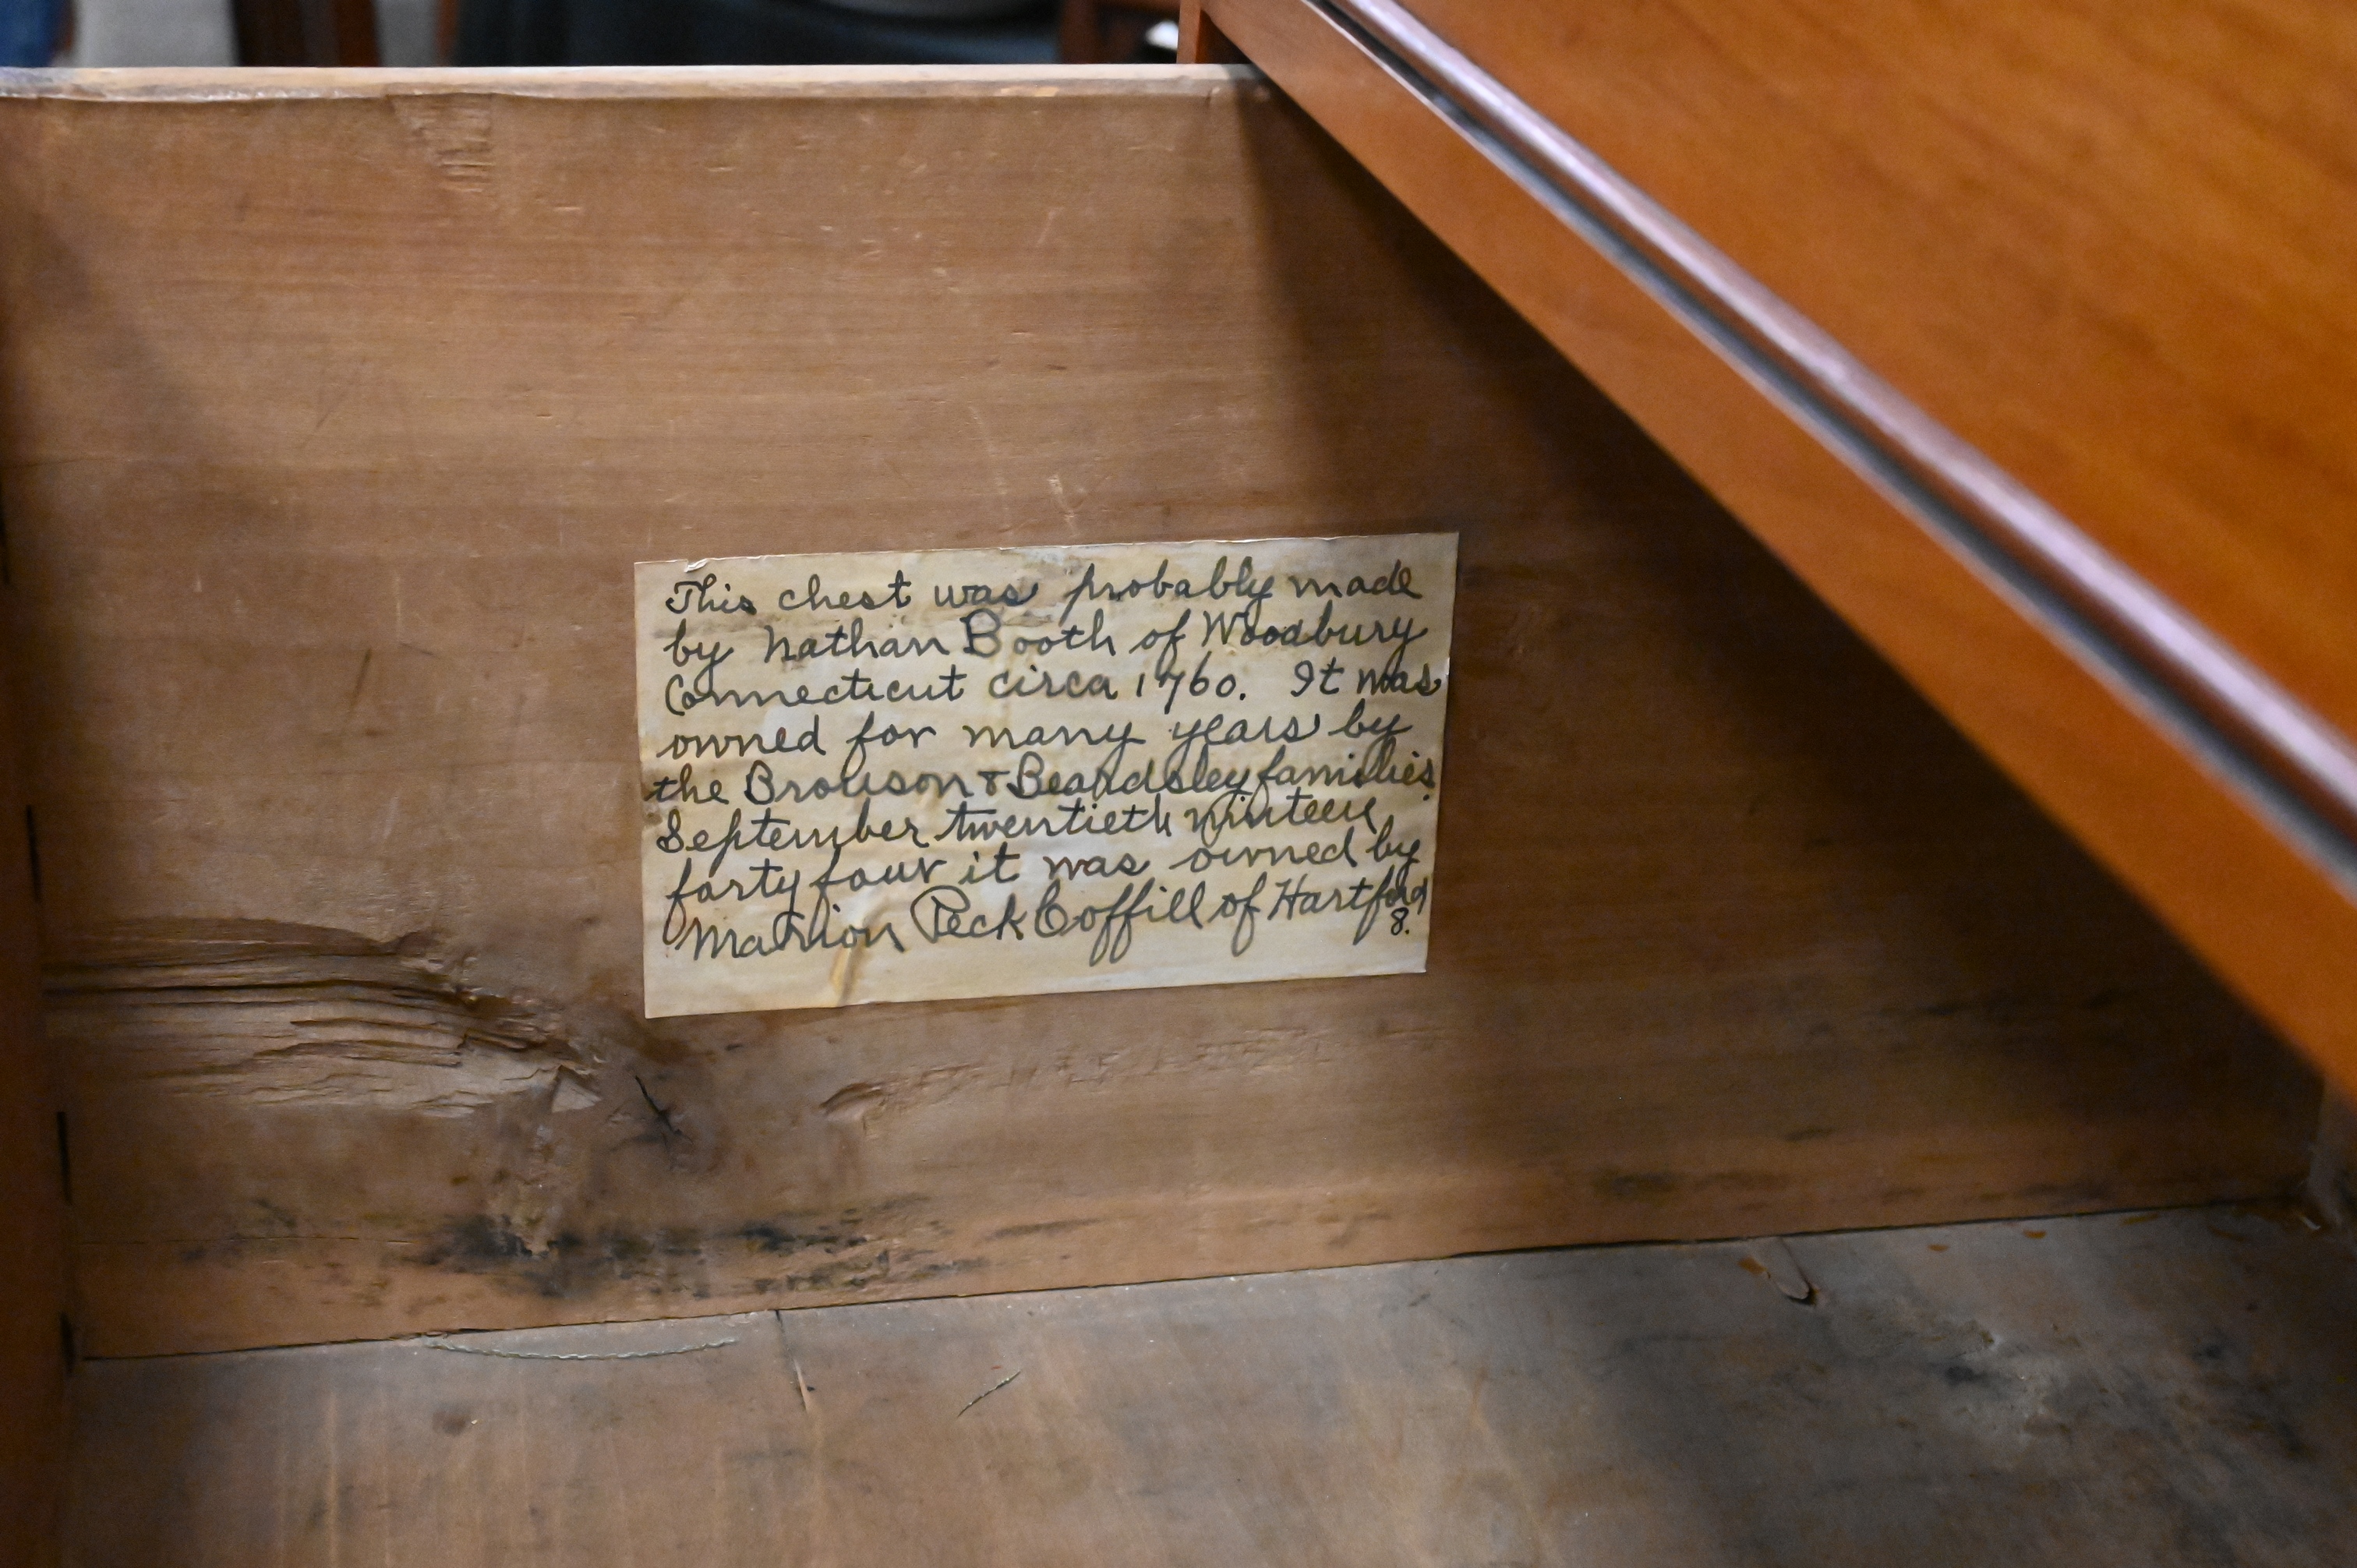 This chest was probably made
by Nathan Booth of Woodbury
Connecticut circa 1760. It was
owned for many years by
the Brouson & Beardsley families.
September twentieth ninteen
forty four it was owned by
Marion Peck Coffill of Hartford
8.